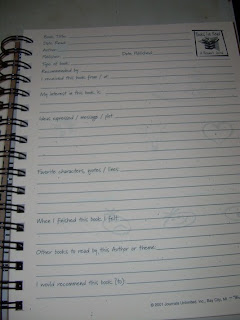 Book Title
Date Read
Author
Publisher Date Published
Type of book
Recommended by
I received this book from / at
My interest in this book is
Main emphasis / message / plot
Favorite characters, quotes / lines
When I finished this book I felt
Other books to read by this Author or theme
I would recommend this book (to):
© 2001 Journals Unlimited, Inc., Bay City, MI